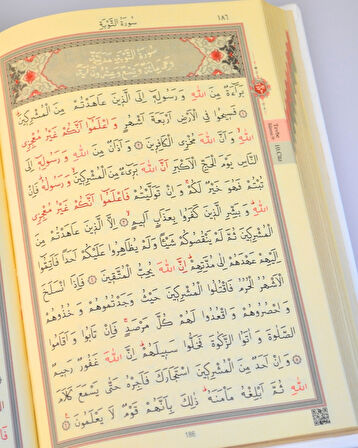 ١٨٦
سُورَةُ التَّوْبَةِ
بَرَٓاءَةٌ مِنَ اللّٰهِ وَ رَسُولِهِ اِلَى الَّذِينَ عَاهَدْتُمْ مِنَ الْمُشْرِكِينَ
فَسِيحُوا فِى الْاَرْضِ اَرْبَعَةَ اَشْهُرٍ وَ اعْلَمُٓوا اَنَّكُمْ غَيْرُ مُعْجِزِى
اللّٰهِ وَ اَنَّ اللّٰهَ مُخْزِى الْكَافِرِينَ ٢ وَ اَذَانٌ مِنَ اللّٰهِ وَ رَسُولِهِٓ اِلَى
النَّاسِ يَوْمَ الْحَجِّ الْاَكْبَرِ اَنَّ اللّٰهَ بَرِٓىءٌ مِنَ الْمُشْرِكِينَ وَ رَسُولُهُ فَاِنْ
تُبْتُمْ فَهُوَ خَيْرٌ لَكُمْ وَ اِنْ تَوَلَّيْتُمْ فَاعْلَمُٓوا اَنَّكُمْ غَيْرُ مُعْجِزِى
اللّٰهِ وَ بَشِّرِ الَّذِينَ كَفَرُوا بِعَذَابٍ اَلِيمٍ ٣ اِلَّا الَّذِينَ عَاهَدْتُمْ مِنَ
الْمُشْرِكِينَ ثُمَّ لَمْ يَنْقُصُوكُمْ شَيْئًا وَ لَمْ يُظَاهِرُوا عَلَيْكُمْ اَحَدًا فَاَتِمُّٓوا
اِلَيْهِمْ عَهْدَهُمْ اِلٰى مُدَّتِهِمْ اِنَّ اللّٰهَ يُحِبُّ الْمُتَّقِينَ ٤ فَاِذَا انْسَلَخَ
الْاَشْهُرُ الْحُرُمُ فَاقْتُلُوا الْمُشْرِكِينَ حَيْثُ وَجَدْتُمُوهُمْ وَ خُذُوهُمْ
وَ احْصُرُوهُمْ وَ اقْعُدُوا لَهُمْ كُلَّ مَرْصَدٍ فَاِنْ تَابُوا وَ اَقَامُوا
الصَّلٰوةَ وَ اٰتَوُا الزَّكٰوةَ فَخَلُّوا سَبِيلَهُمْ اِنَّ اللّٰهَ غَفُورٌ رَحِيمٌ
٥ وَ اِنْ اَحَدٌ مِنَ الْمُشْرِكِينَ اسْتَجَارَكَ فَاَجِرْهُ حَتّٰى يَسْمَعَ كَلَامَ
اللّٰهِ ثُمَّ اَبْلِغْهُ مَأْمَنَهُ ذٰلِكَ بِاَنَّهُمْ قَوْمٌ لَا يَعْلَمُونَ ٦
186